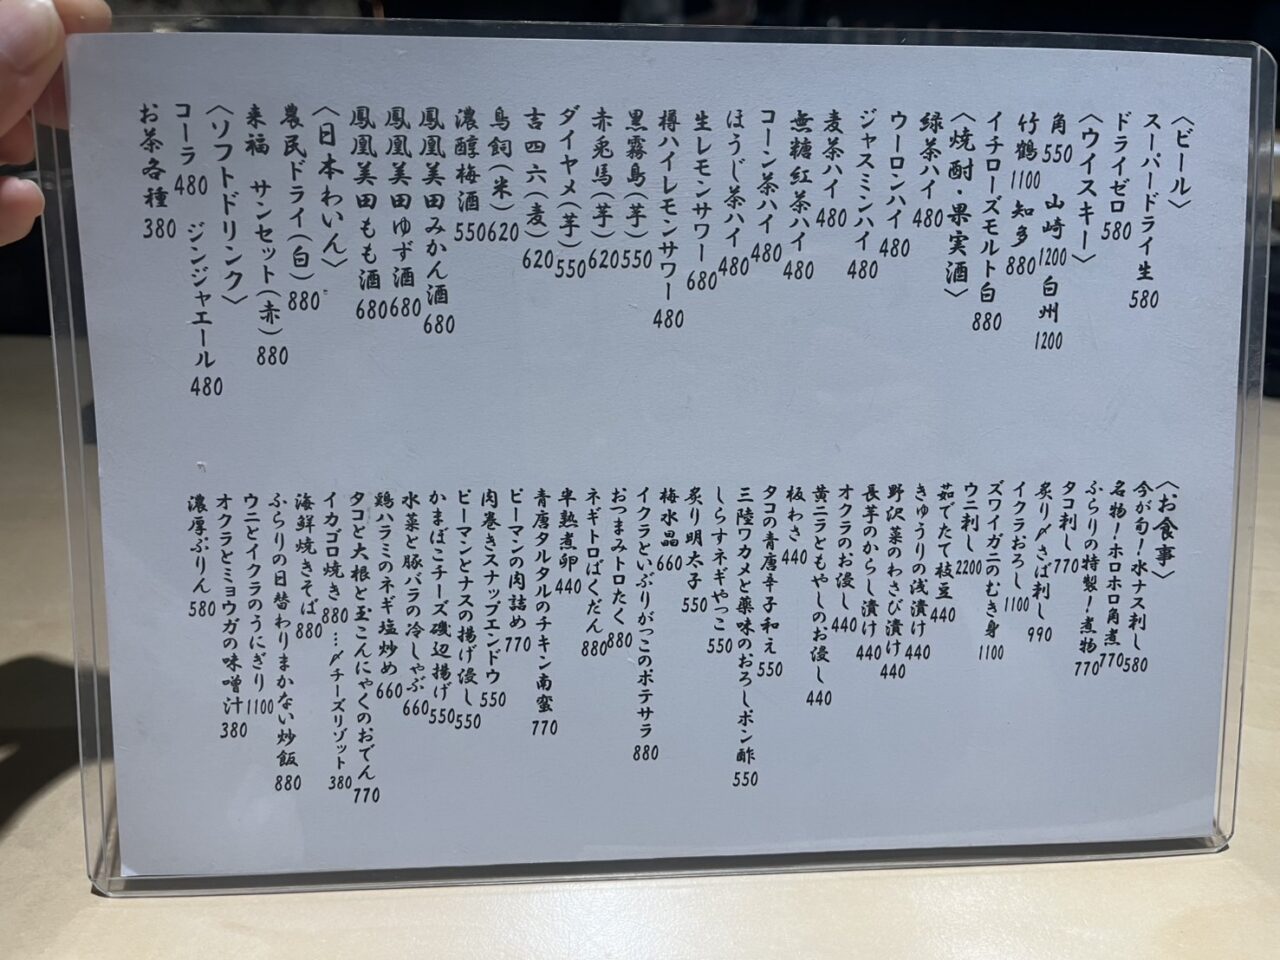 〈ビール〉
スーパードライ生 580
ドライゼロ 580
〈ウイスキー〉
角 550 山崎 1200 白州 1200
竹鶴 1100 知多 880
イチローズモルト白 880
〈焼酎・果実酒〉
緑茶ハイ 480
ウーロンハイ 480
ジャスミンハイ 480
麦茶ハイ 480
無糖紅茶ハイ 480
コーン茶ハイ 480
ほうじ茶ハイ 480
生レモンサワー 680
樽ハイレモンサワー 480
黒霧島(芋) 550
赤兎馬(芋) 620
ダイヤメ(芋) 550
吉四六(麦) 620
鳥飼(米) 620
濃醇梅酒 550
鳳凰美田みかん酒 680
鳳凰美田ゆず酒 680
鳳凰美田もも酒 680
〈日本わいん〉
農民ドライ(白) 880
来福 サンセット(赤) 880
〈ソフトドリンク〉
コーラ 480 ジンジャエール 480
お茶各種 380
〈お食事〉
今が旬!水ナス刺し 580
名物!ホロホロ角煮 770
ふらりの特製!煮物 770
タコ刺し 770
炙り〆さば刺し 990
イクラおろし 1100
ズワイガニのむき身 1100
ウニ刺し 2200
茹でたて枝豆 440
きゅうりの浅漬け 440
野沢菜のわさび漬け 440
長芋のからし漬け 440
オクラのお浸し 440
黄ニラともやしのお浸し 440
板わさ 440
タコの青唐辛子和え 550
三陸ワカメと薬味のおろしポン酢 550
しらすネギやっこ 550
炙り明太子 550
梅水晶 660
イクラといぶりがっこのポテサラ 880
おつまみトロたく 880
ネギトロばくだん 880
半熟煮卵 440
青唐タルタルのチキン南蛮 770
ピーマンの肉詰め 770
肉巻きスナップエンドウ 550
ピーマンとナスの揚げ浸し 550
かまぼこチーズ磯辺揚げ 550
水菜と豚バラの冷しゃぶ 660
鶏ハラミのネギ塩炒め 660
タコと大根と玉こんにゃくのおでん 770
イカゴロ焼き 880 …〆チーズリゾット 380
海鮮焼きそば 880
ふらりの日替わりまかない炒飯 880
ウニとイクラのうにぎり 1100
オクラとミョウガの味噌汁 380
濃厚ぷりん 580